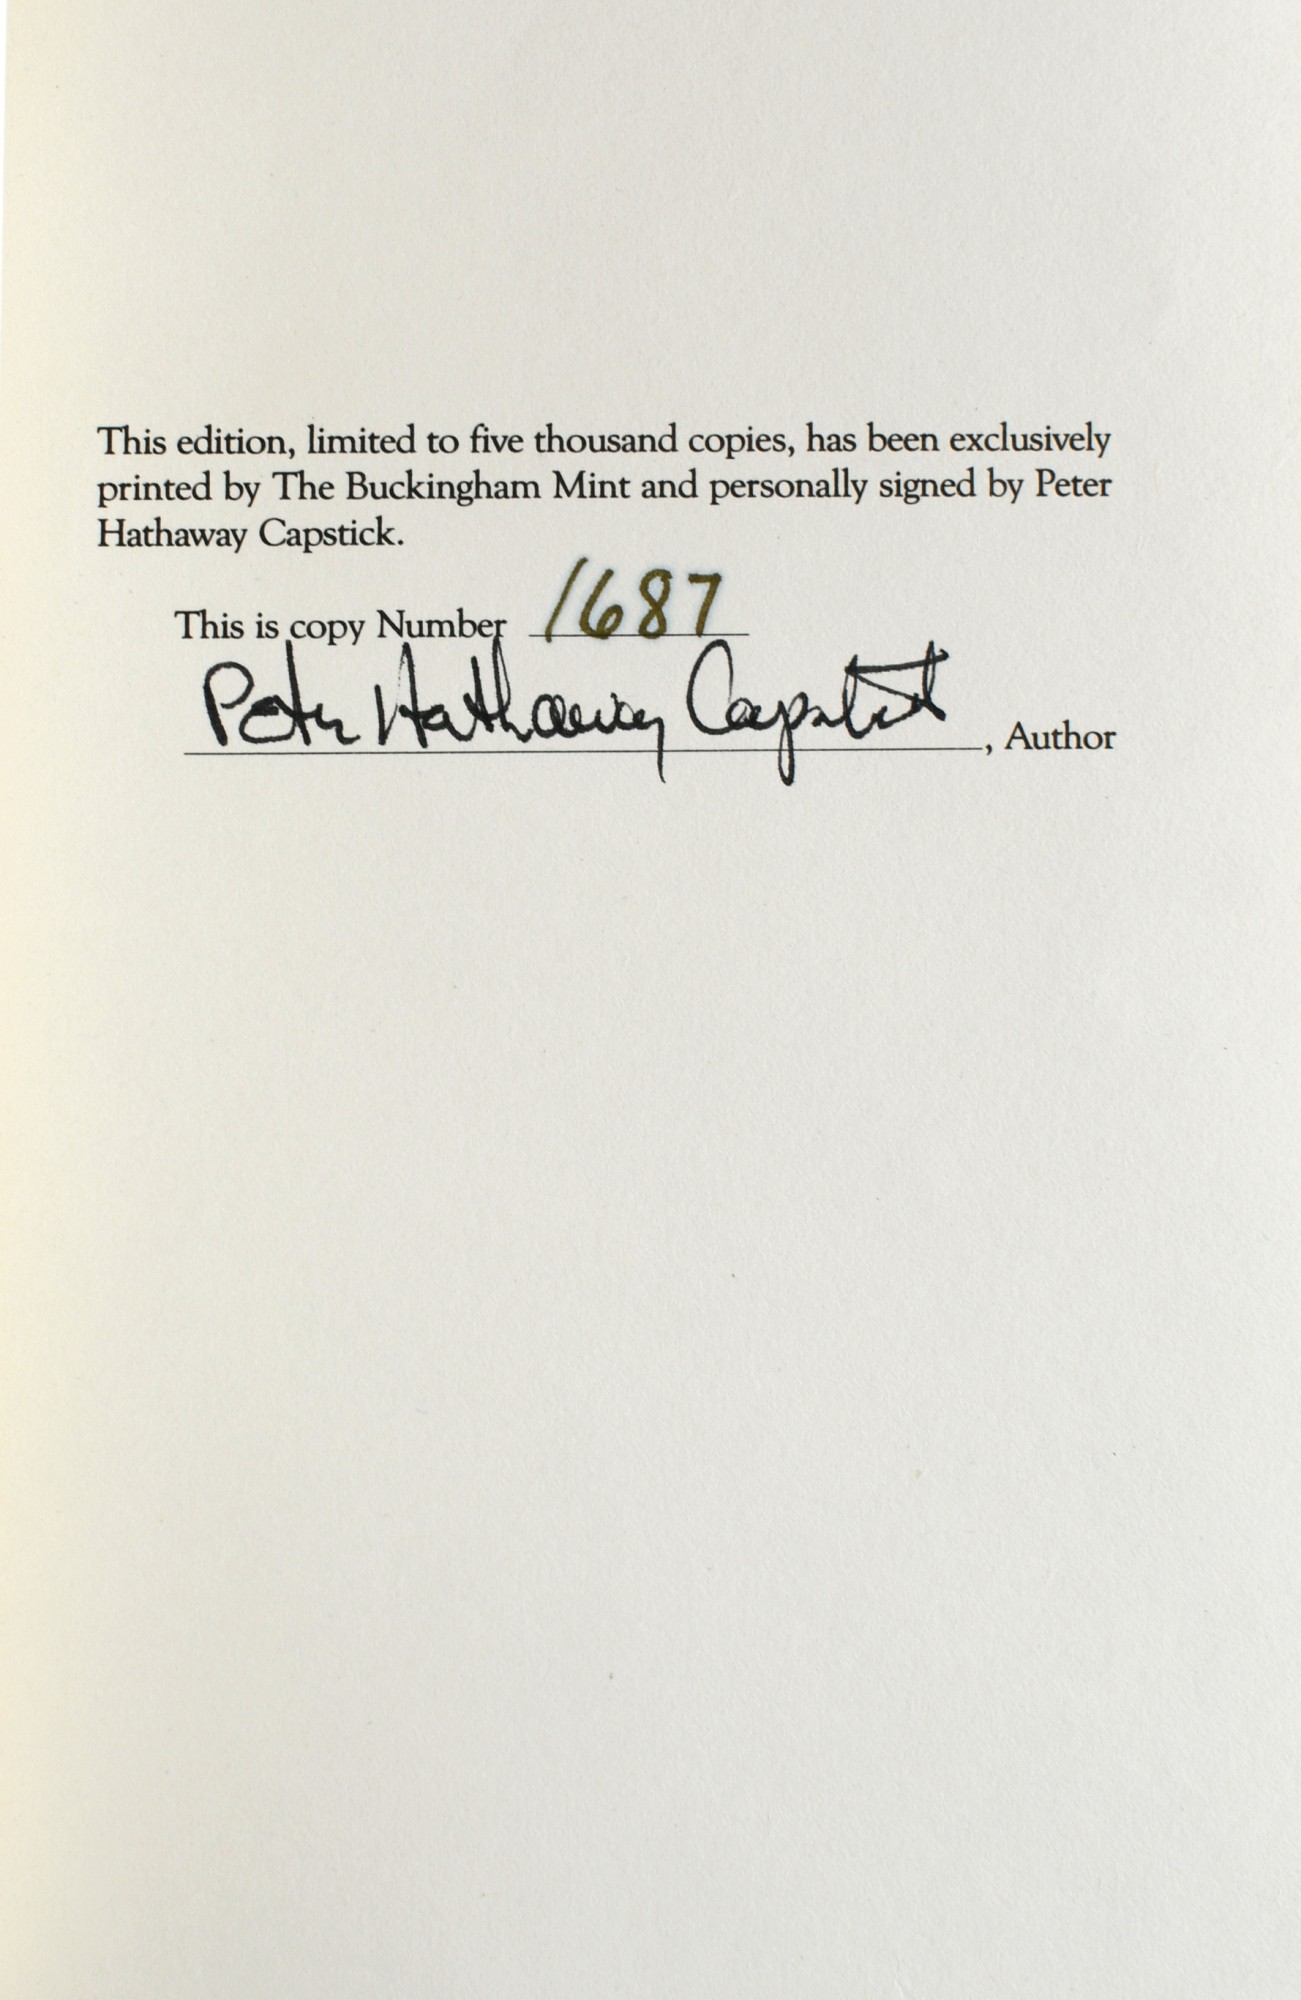 This edition, limited to five thousand copies, has been exclusively
printed by The Buckingham Mint and personally signed by Peter
Hathaway Capstick.
This is copy Number 1687
Peter Hathaway Capstick, Author